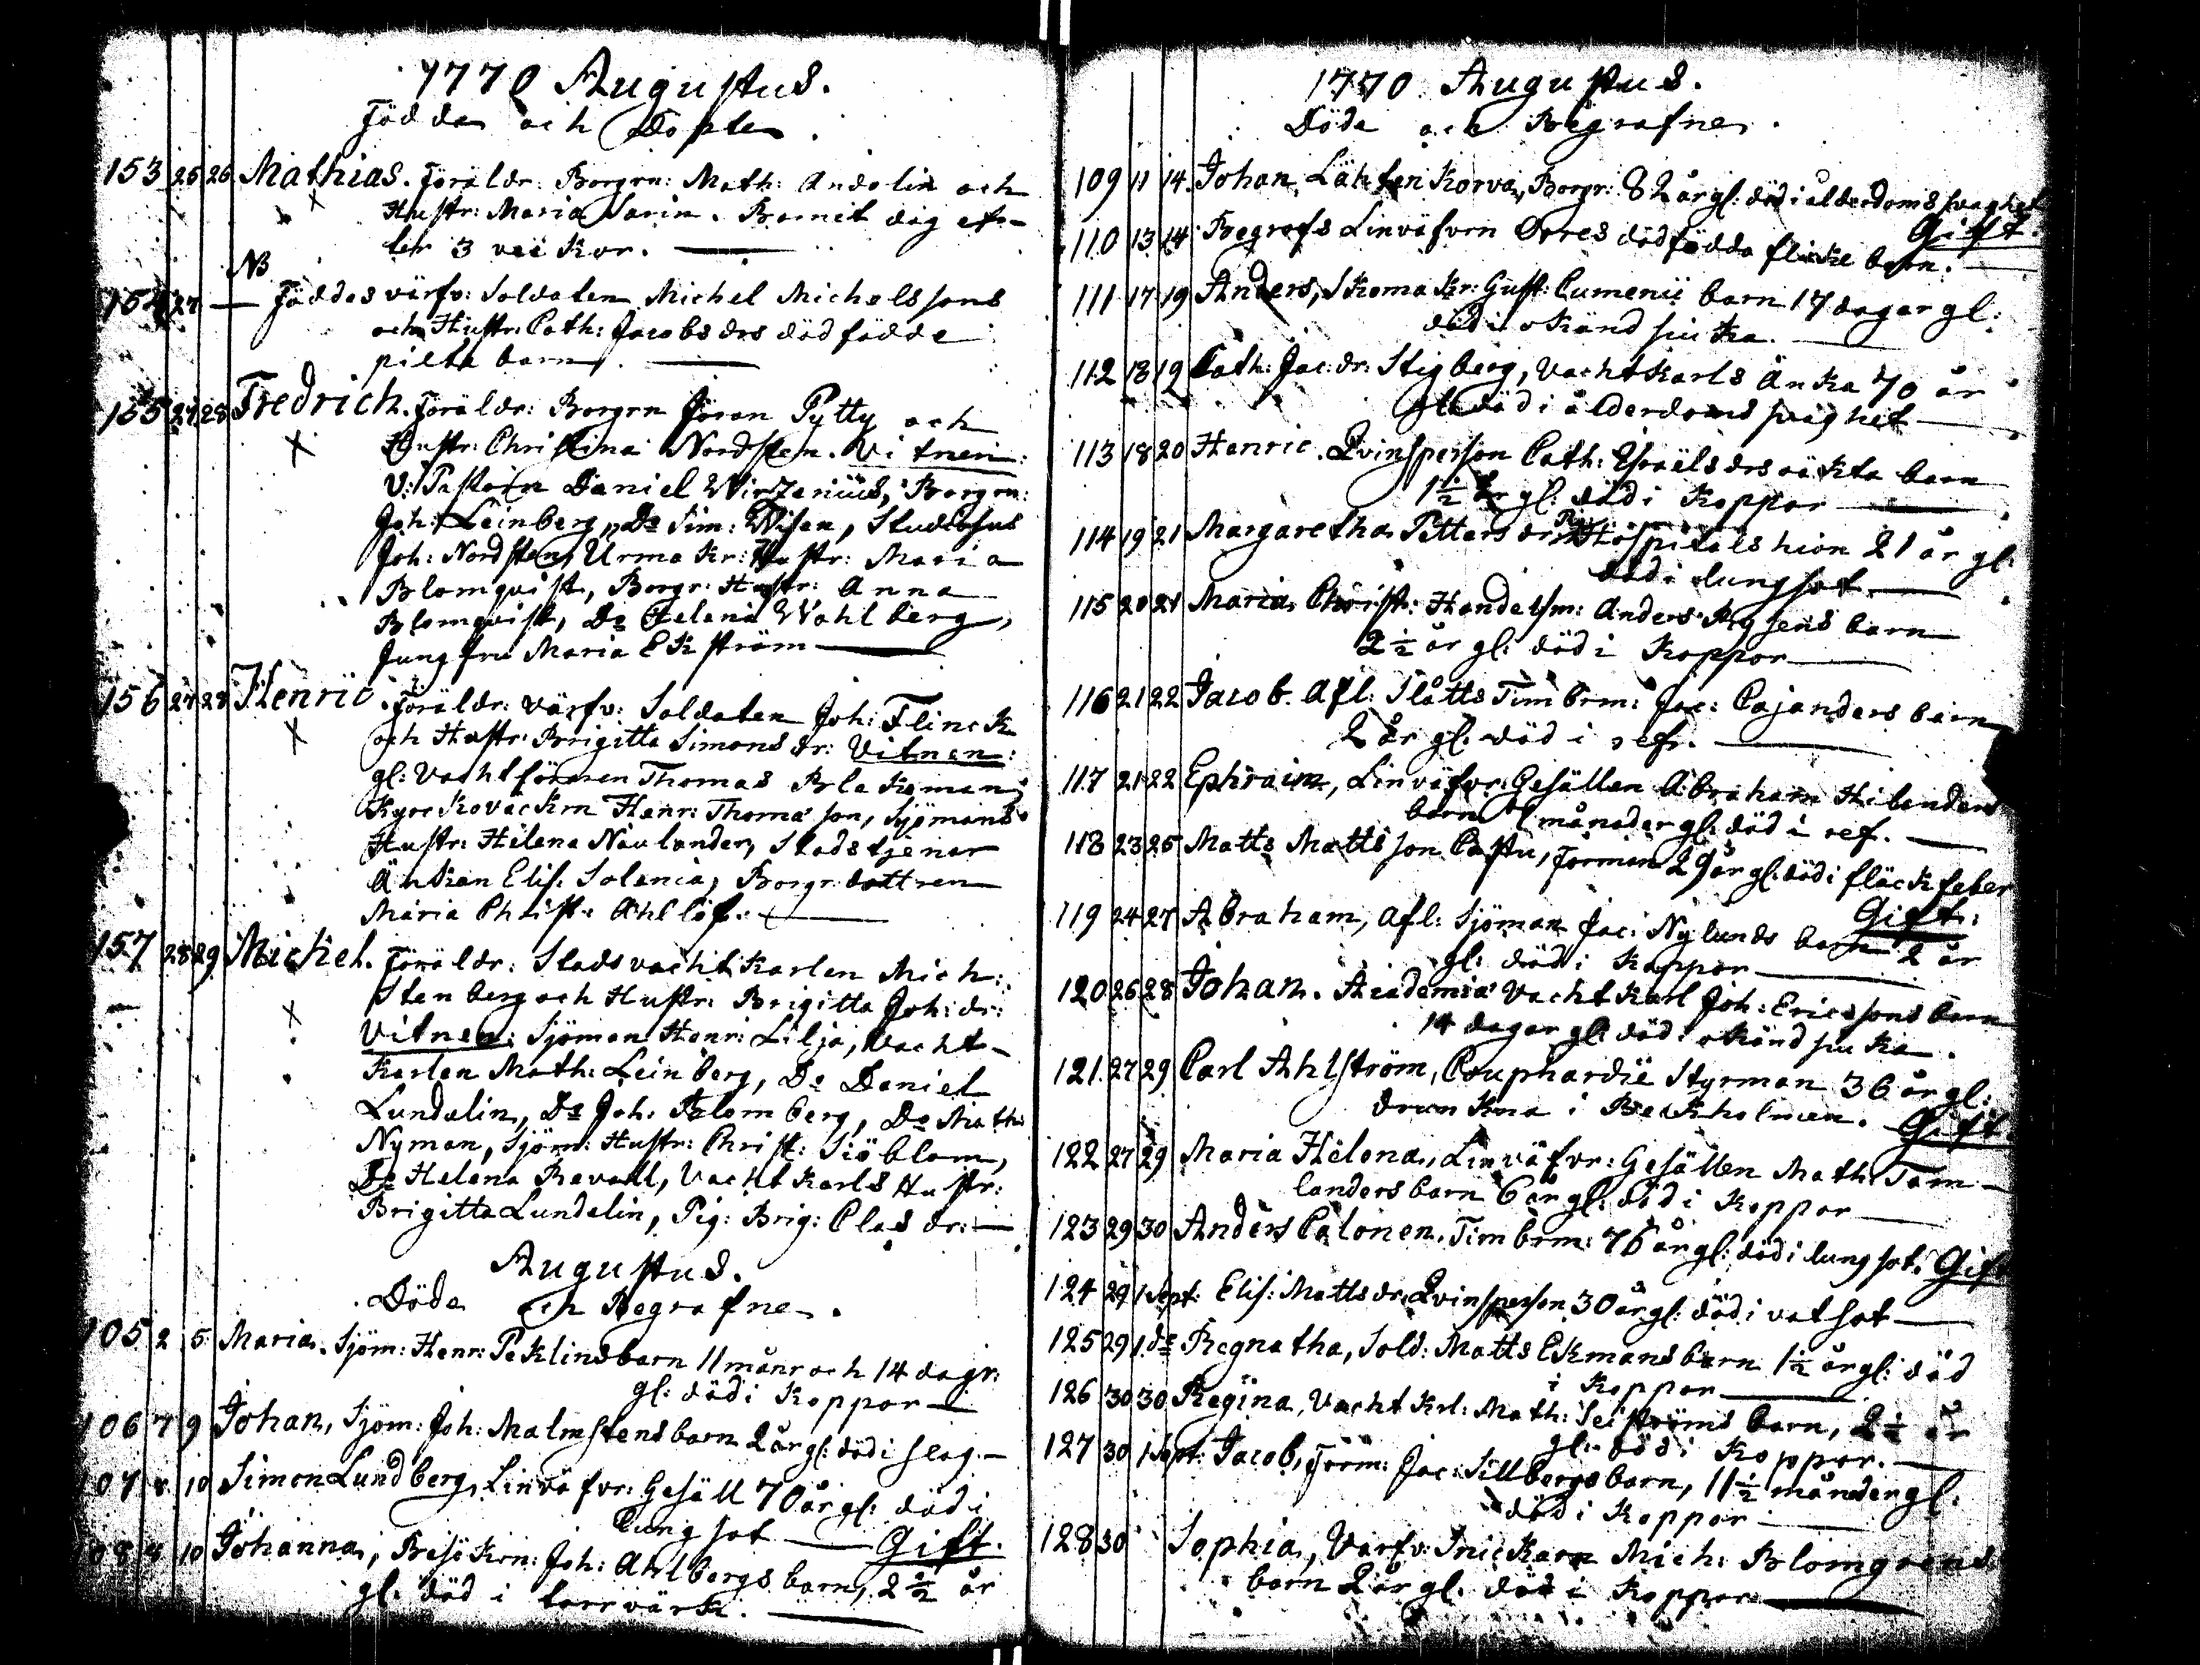 1770 Augustus.
Födda och Döpte.
153 25 26 Mathias. Föräldr: Borgrn: Math: Andelin och
Hustr: Maria Sarin. Barnet dog ef-
ter 3 veckor.
NB
154 27 — Föddes värfv: Soldaten Michel Michelssons
och Hustr: Cath: Jacobsdrs dödfödde
pilte barn.
155 27 28 Fredrich. Föräldr: Borgrn Jöran Pytty och
Hustr: Christina Nordsten. Vitnen:
V: Pastorn Daniel Wirzenius, Borgrn:
Joh: Leinberg, Do Sim: Wisen, Studiosus
Joh: Nordsten, Urmakr: Hustr: Maria
Blomqvist, Borgr: Hustr: Anna
Blomqvist, Do Helena Wahlberg,
Jungfru Maria Ekström
156 27 28 Henric. Föräldr: värfv: Soldaten Joh: Flinck
och Hustr: Brigitta Simonsdr: Vitnen:
gl: Vachtföraren Thomas Blakman,
Kyrckovackrn Henr: Thomasson, Sjömans
Hustr: Helena Naulander, Stadstjenar
Änkan Elis: Solenia, Borgr: dottren
Maria Christ: Ahllöf.
157 28 29 Michel. Föräldr: Stadsvachtkarlen Mich:
Stenberg och Hustr: Brigitta Joh: dr:
Vitnen: Sjöman Henr: Lilja, Vacht-
karlen Math: Leinberg, Do Daniel
Lundelin, Do Joh: Blomberg, Do Math:
Nyman, Sjöm: Hustr: Christ: Siöblom,
Do Helena Revall, Vachtkarls Hustr:
Brigitta Lundelin, Pig: Brig: Clas dr:
Augustus.
Döde och Begrafne.
105 2 5 Maria. Sjöm: Henr: Peklins barn 11 månr och 14 dagr:
gl: död i Koppor
106 7 9 Johan, Sjöm: Joh: Malmstens barn 2 år gl: död i slag.
107 8 10 Simon Lundberg, Linväfvr: Gesäll 70 år gl: död i
Lungsot Gift.
108 8 10 Johanna, Besökrn: Joh: Ahlbergs barn, 2 1/2 år
gl: död i torrvärk.
1770 Augustus.
Döda och Begrafne.
109 11 14 Johan Lähtenkorva, Borgr: 82 år gl: död i ålderdoms svaghet
Gift.
110 13 14 Begrofs Linväfvrn Orres dödfödda flicke barn.
111 17 19 Anders, Skomakr: Gust: Cumenii barn 17 dagar gl:
död i okänd siuka.
112 18 19 Cath: Jac: dr: Stigberg, Vachtkarls Änka 70 år
gl: död i ålderdoms svaghet
113 18 20 Henric. Qvinsperson Cath: Israëlsdrs oäkta barn
1 1/2 år gl: död i Koppor
114 19 21 Margaretha Petters dr, Hospitals hion 21 år gl:
död i lungsot.
115 20 21 Maria Christ: Handelsm: Anders barn
2 1/2 år gl: död i Koppor
116 21 22 Jacob. Afl: Slåtts Timbrm: Jac: Cajanders barn
2 år gl: död i ref.
117 21 22 Ephraim, Linväfvr: Gesällen Abraham Hilanders
barn månader gl: död i ref.
118 23 25 Matts Mattsson Pastu, Forman 29 år gl: död i fläckfeber
Gift.
119 24 27 Abraham, Afl: Sjöman Jac: Nylunds barn 2 år
gl: död i Koppor
120 26 28 Johan. Academiæ Vachtkarl Joh: Ericssons barn
14 dagar gl: död i okänd siuka.
121 27 29 Carl Ahlström, Couphardie Styrman 36 år gl:
drunkna i Beckholmen. Gift.
122 27 29 Maria Helena, Linväfvr: Gesällen Math: Tam-
landers barn 6 år gl: död i Koppor
123 29 30 Anders Palonen. Timbrm: 76 år gl: död i lungsot. Gift
124 29 1 Sept: Elis: Mattsdr, Qvinsperson 30 år gl: död i vatsot
125 29 1 do Regnatha, Sold: Matts Ekmans barn 1 1/2 år gl: död
i Koppor
126 30 30 Regina, Vachtkrl: Math: barn, 2 1/2 år
gl: död i Koppor.
127 30 1 Sept: Jacob, Form: Jac: Sillbergs barn, 11 1/2 månder gl:
död i Koppor
128 30 Sophia, Varfv: Snickarn Mich: Blomgrens
barn 2 år gl: död i Koppor.